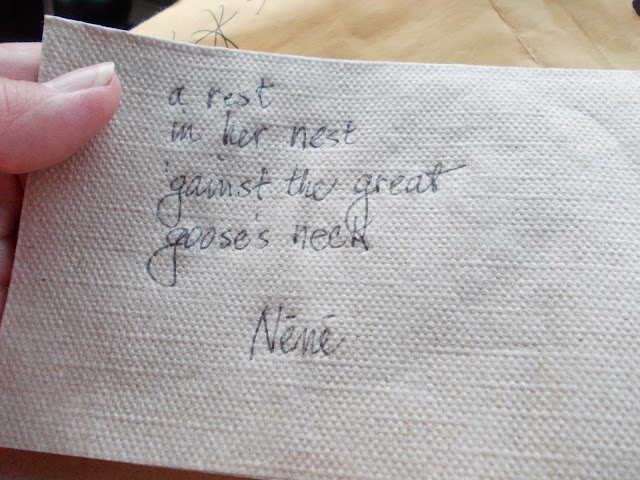 a rest
in her nest
'gainst the great
goose's neck
Nēnē